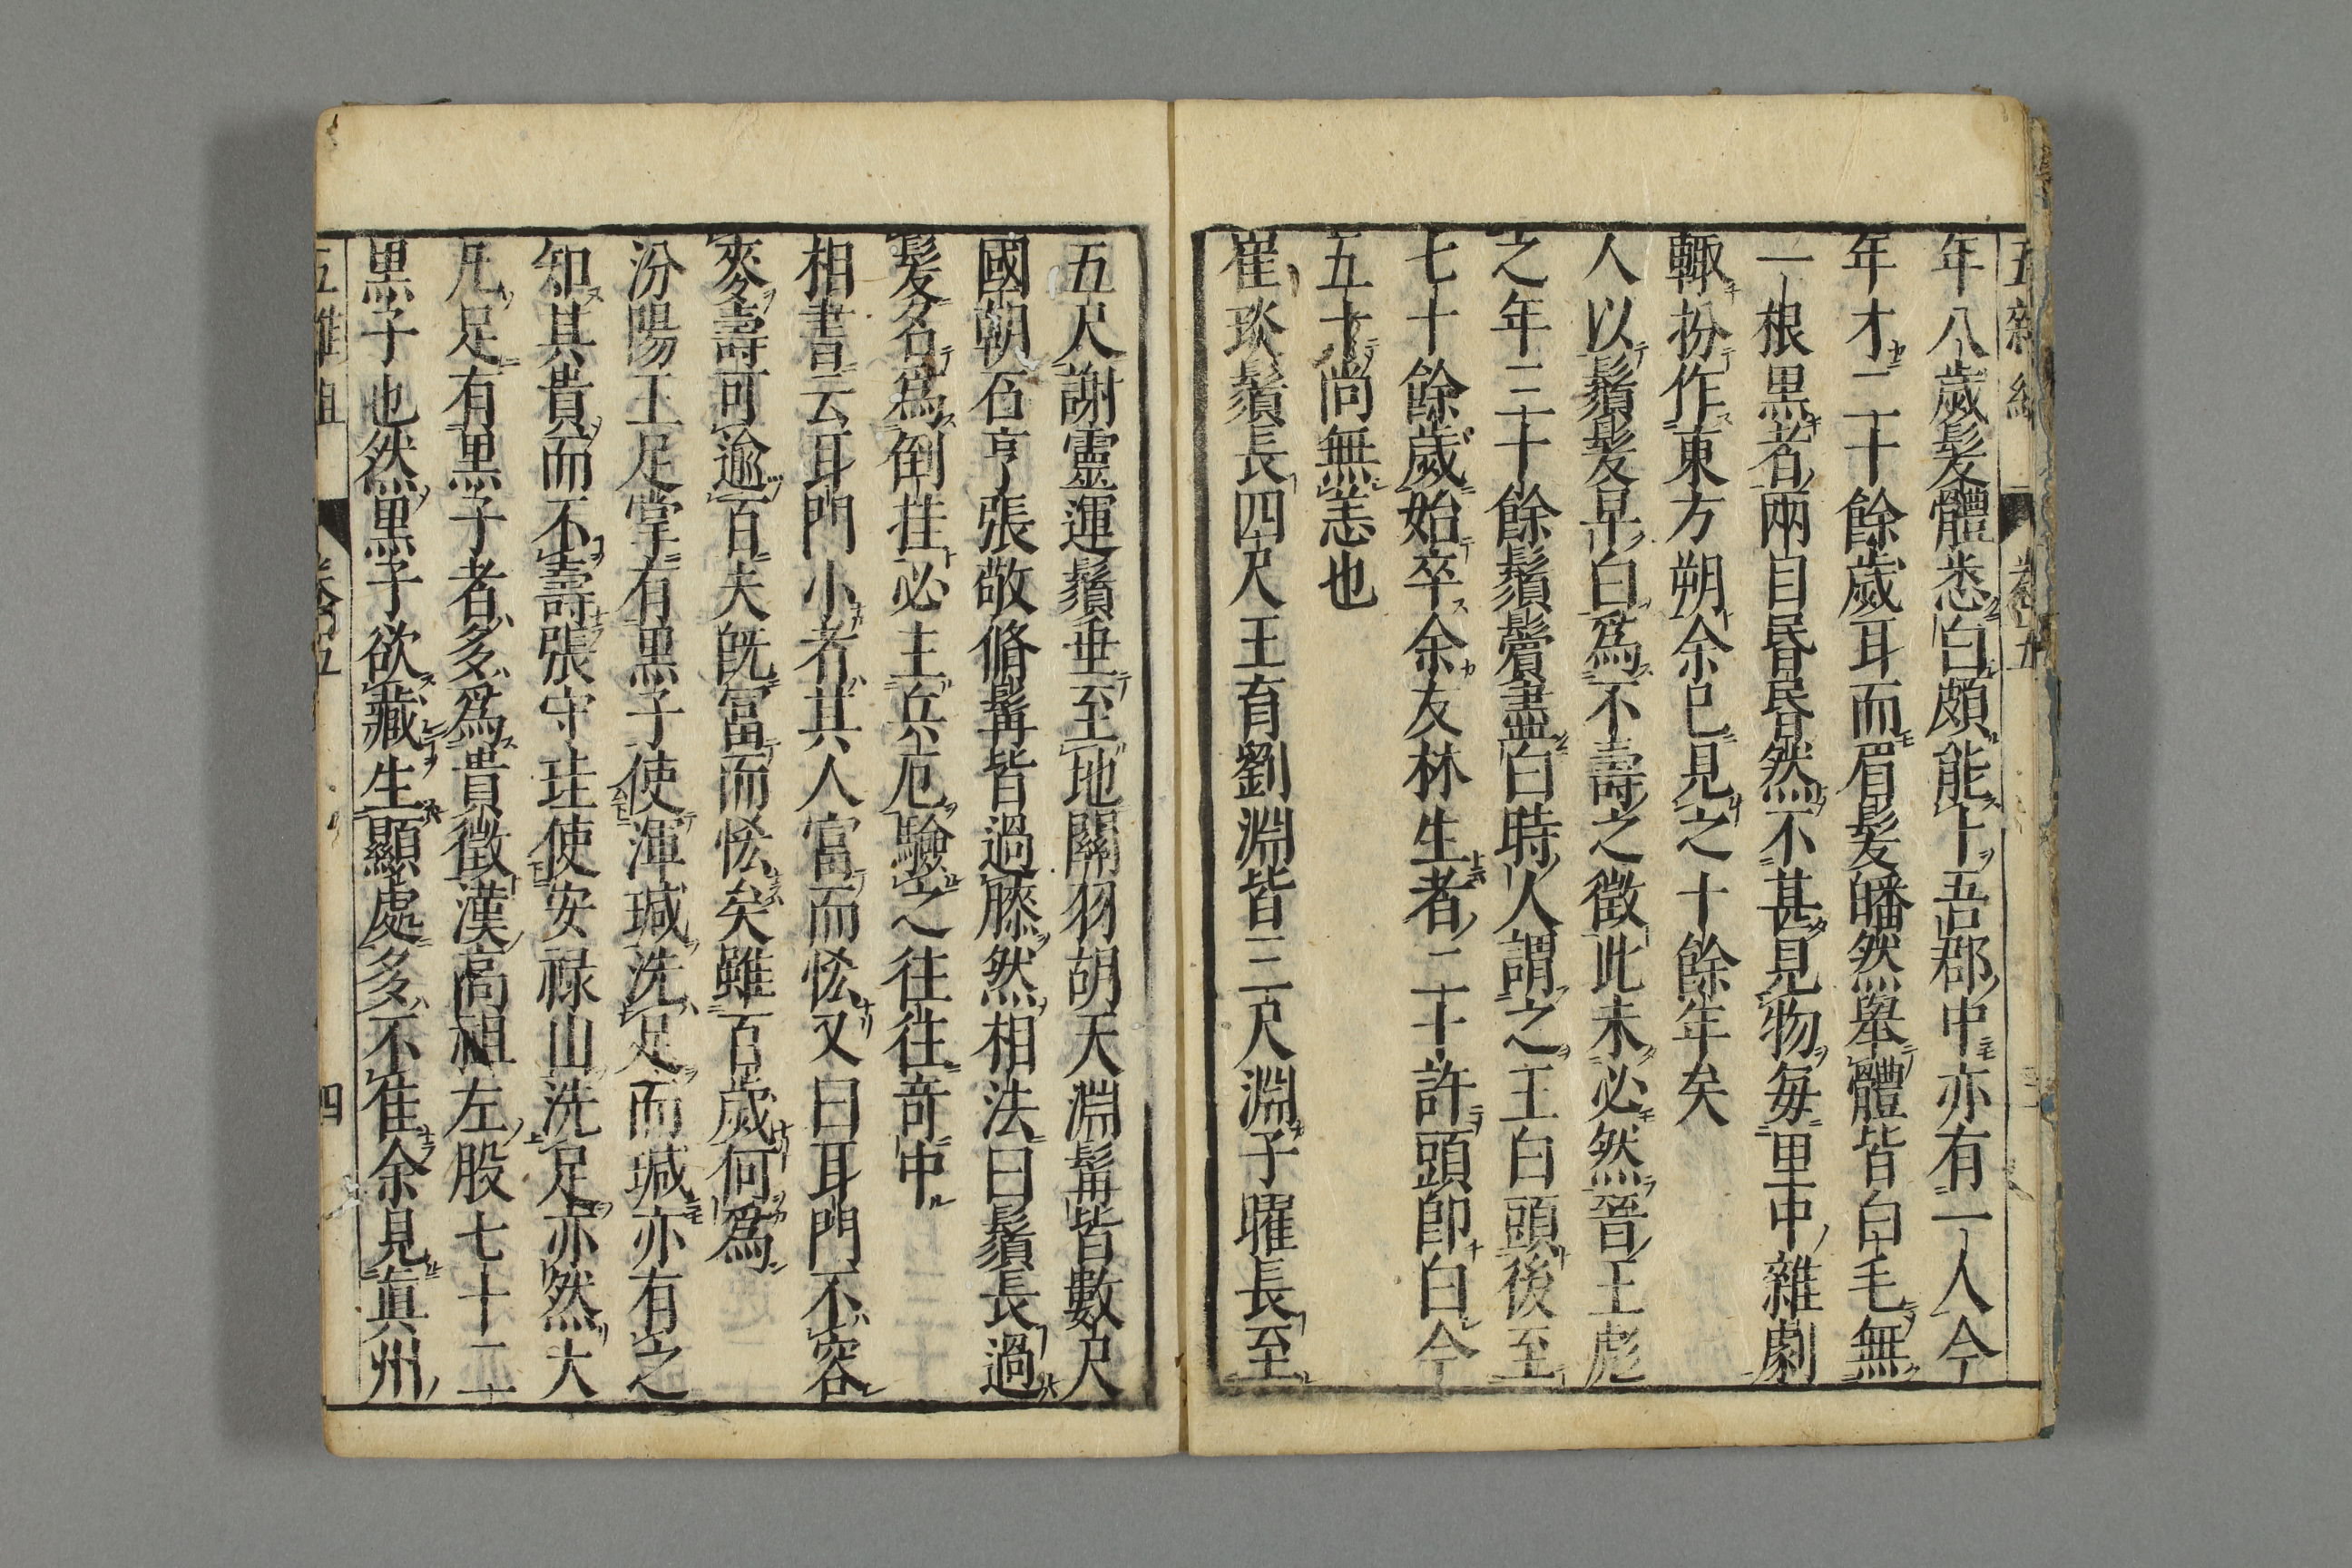 年八歲髮體悉白頗能卜吾郡中亦有一人今
年才二十餘歲耳而眉髮皤然舉體皆白毛無
一根黒者兩目昏昏然不甚見物毎里中雜劇
輙扮作東方朔余已見之十餘年矣
人以鬚髮早白爲不壽之徴此未必然晉王彪
之年二十餘鬚鬢盡白時人謂之王白頭後至
七十餘歲始卒余友林生者二十許頭即白今
五十尚無恙也
崔琰鬚長四尺王育劉淵皆三尺淵子曜長至
五尺謝靈運鬚垂至地關羽胡天淵髯皆數尺
國朝石亨張敬脩髯皆過膝然相法曰鬚長過
髪名爲倒挂必主兵厄驗之往往竒中
相書云耳門小者其人富而恡又曰耳門不容
麥壽可逾百夫既冨而恡矣雖百歲何爲
汾陽王足掌有黒子使渾瑊洗足而瑊亦有之
知其貴而不壽張守珪使安禄山洗足亦然大
凡足有黒子者多爲貴徴漢高祖左股七十二
黒子也然黒子欲藏生顯處多不佳余見眞州
五雜組 卷五 四